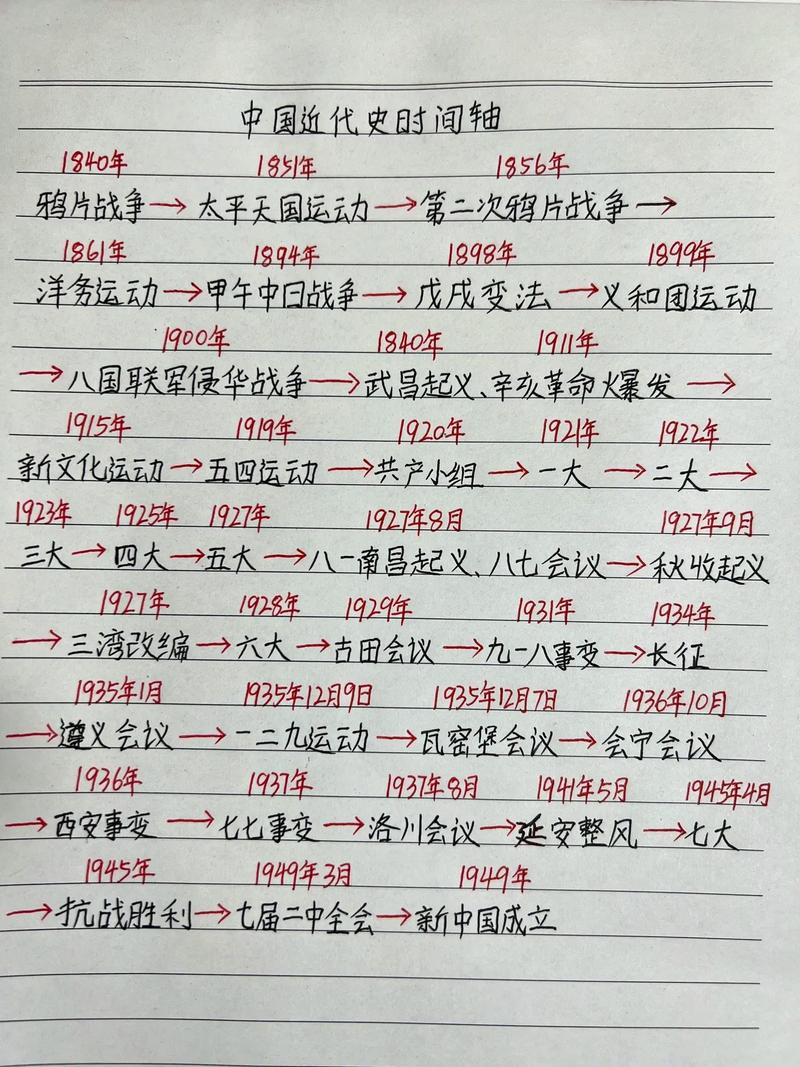 中国近代史时间轴
1840年 1851年 1856年
鸦片战争→太平天国运动→第二次鸦片战争→
1861年 1894年 1898年 1899年
洋务运动→甲午中日战争→戊戌变法→义和团运动
1900年 1840年 1911年
→八国联军侵华战争→武昌起义、辛亥革命爆发→
1915年 1919年 1920年 1921年 1922年
新文化运动→五四运动→共产小组→一大→二大→
1923年 1925年 1927年 1927年8月 1927年9月
三大→四大→五大→八一南昌起义、八七会议→秋收起义
1927年 1928年 1929年 1931年 1934年
→三湾改编→六大→古田会议→九一八事变→长征
1935年1月 1935年12月9日 1935年12月7日 1936年10月
→遵义会议→一二九运动→瓦窑堡会议→会宁会议
1936年 1937年 1937年8月 1941年5月 1945年4月
→西安事变→七七事变→洛川会议→延安整风→七大
1945年 1949年3月 1949年
→抗战胜利→七届二中全会→新中国成立